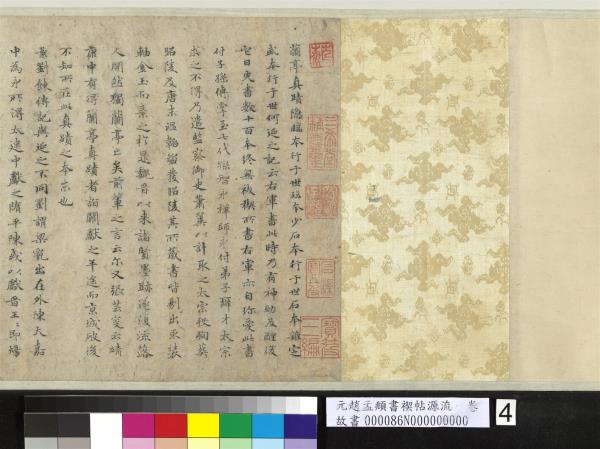 蘭亭真蹟隱臨本行于世臨本少石本行于世石本雜定
武本行于世何延之記云右軍書此時乃有神助及醒後
它日更書數十百本終無祓禊所書右軍亦自珍愛此書
付子孫傳掌至七代孫智永禪師永付弟子辯才太宗
求之不得乃遣監察御史蕭翼以計取之太宗殉葬
昭陵及唐末溫韜發昭陵其所藏書皆剔出取裝
軸金玉而棄之於是魏晉以來諸賢墨跡復流落
人間然獨蘭亭亡矣前輩之言云尔又張芸叟云靖
康中有得蘭亭真蹟者詣闕獻之半途而京城破後
不知所在此真蹟之本末也
葉劉餗傳記與延之不同劉謂梁亂出在外陳天嘉
中為永所得太建中獻之隋平陳或以獻晉王王即煬
元趙孟頫書禊帖源流 卷
故書 000086N000000000
4